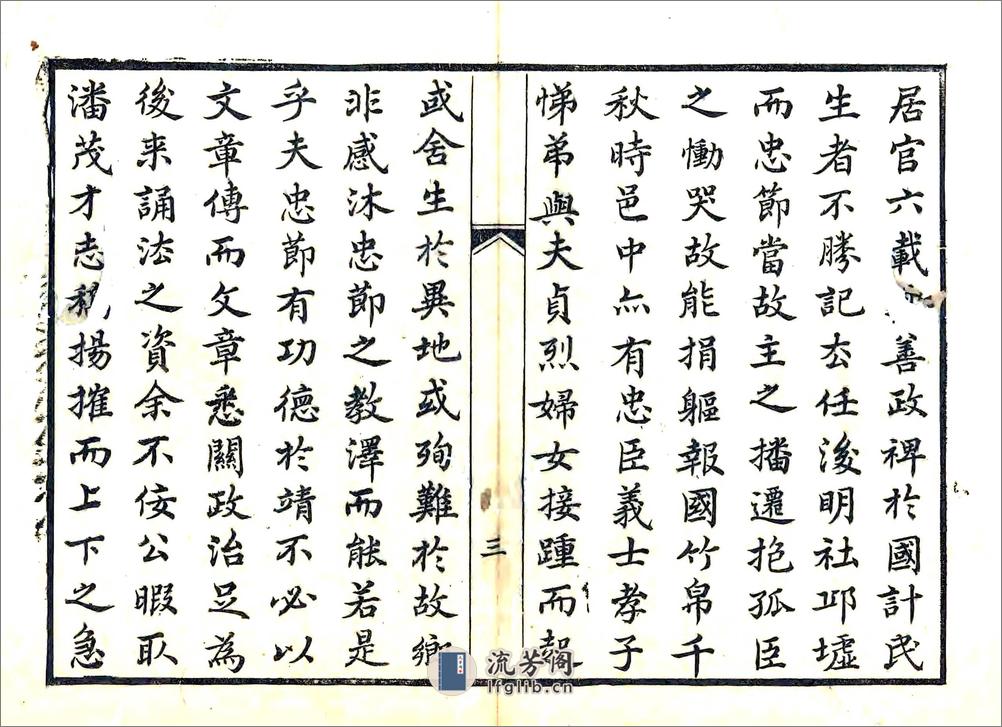 居官六載善政禆於國計民
生者不勝記厺任後明社邱墟
而忠節當故主之播遷抱孤臣
之慟哭故能捐軀報國竹帛千
秋時邑中亦有忠臣義士孝子
悌弟與夫貞烈婦女接踵而起
三
或舍生於異地或殉難於故鄉
非感沐忠節之教澤而能若是
乎夫忠節有功德於靖不必以
文章傳而文章悉關政治足為
後来誦法之資余不佞公暇取
潘茂才志稿揚搉而上下之急
流芳阁
lfglib.cn